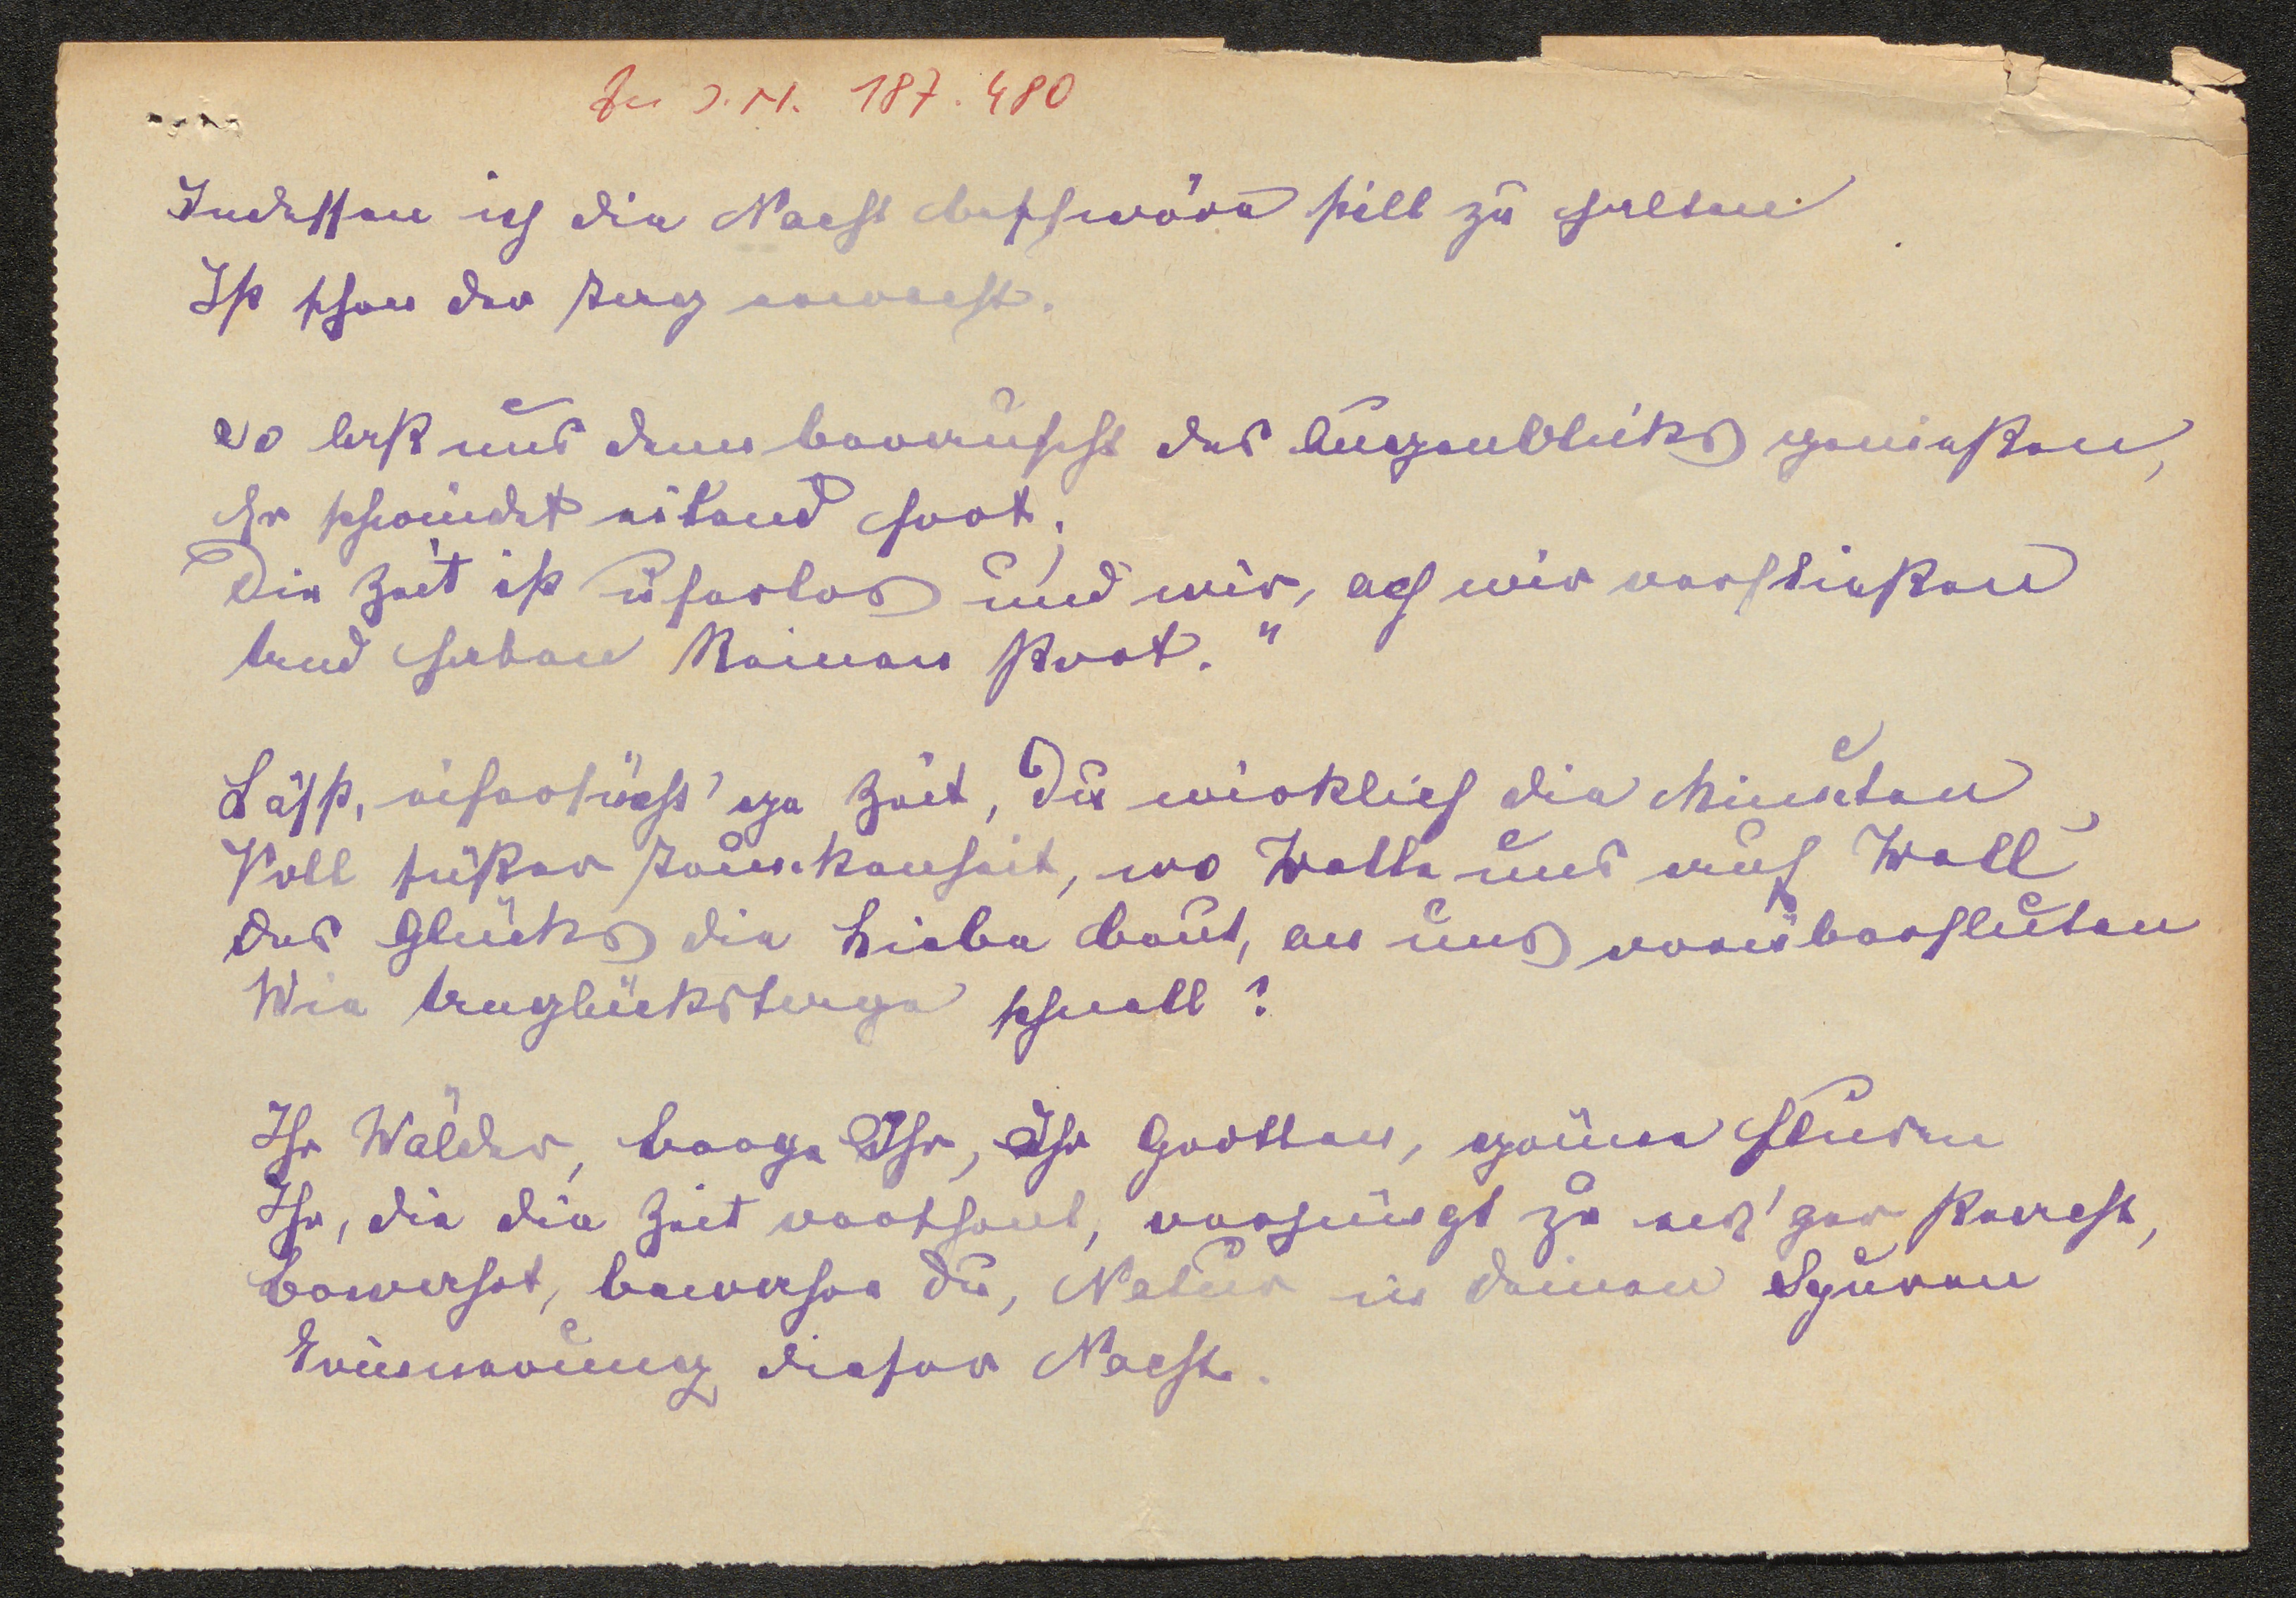 Zu J.N. 187.480
Indessen ich die Nacht beschwöre still zu halten
Ist schon der Tag erwacht.
So laßt uns denn berauscht des Augenbliks genießen,
Er schwindet eilend fort,
Die Zeit ist uferlos und wir, ach wir verfließen
Und haben keinen Port."
Läßt, eifersücht'ge Zeit, Du wirklich die Minuten
Voll süßer Trunkenheit, wo Welle uns auf Well
Des Glücks die Liebe beut, an uns vorüberfluten
Wie Unglückstage schnell?
Ihr Wälder, berge Ihr, Ihr Grotten, grüne Fluren
Ihr, die die Zeit verschont, verjüngt zu ew'ger Pracht,
bewahret, bewahre Du, Natur in deinen Spuren
Erinnerung dieser Nacht.